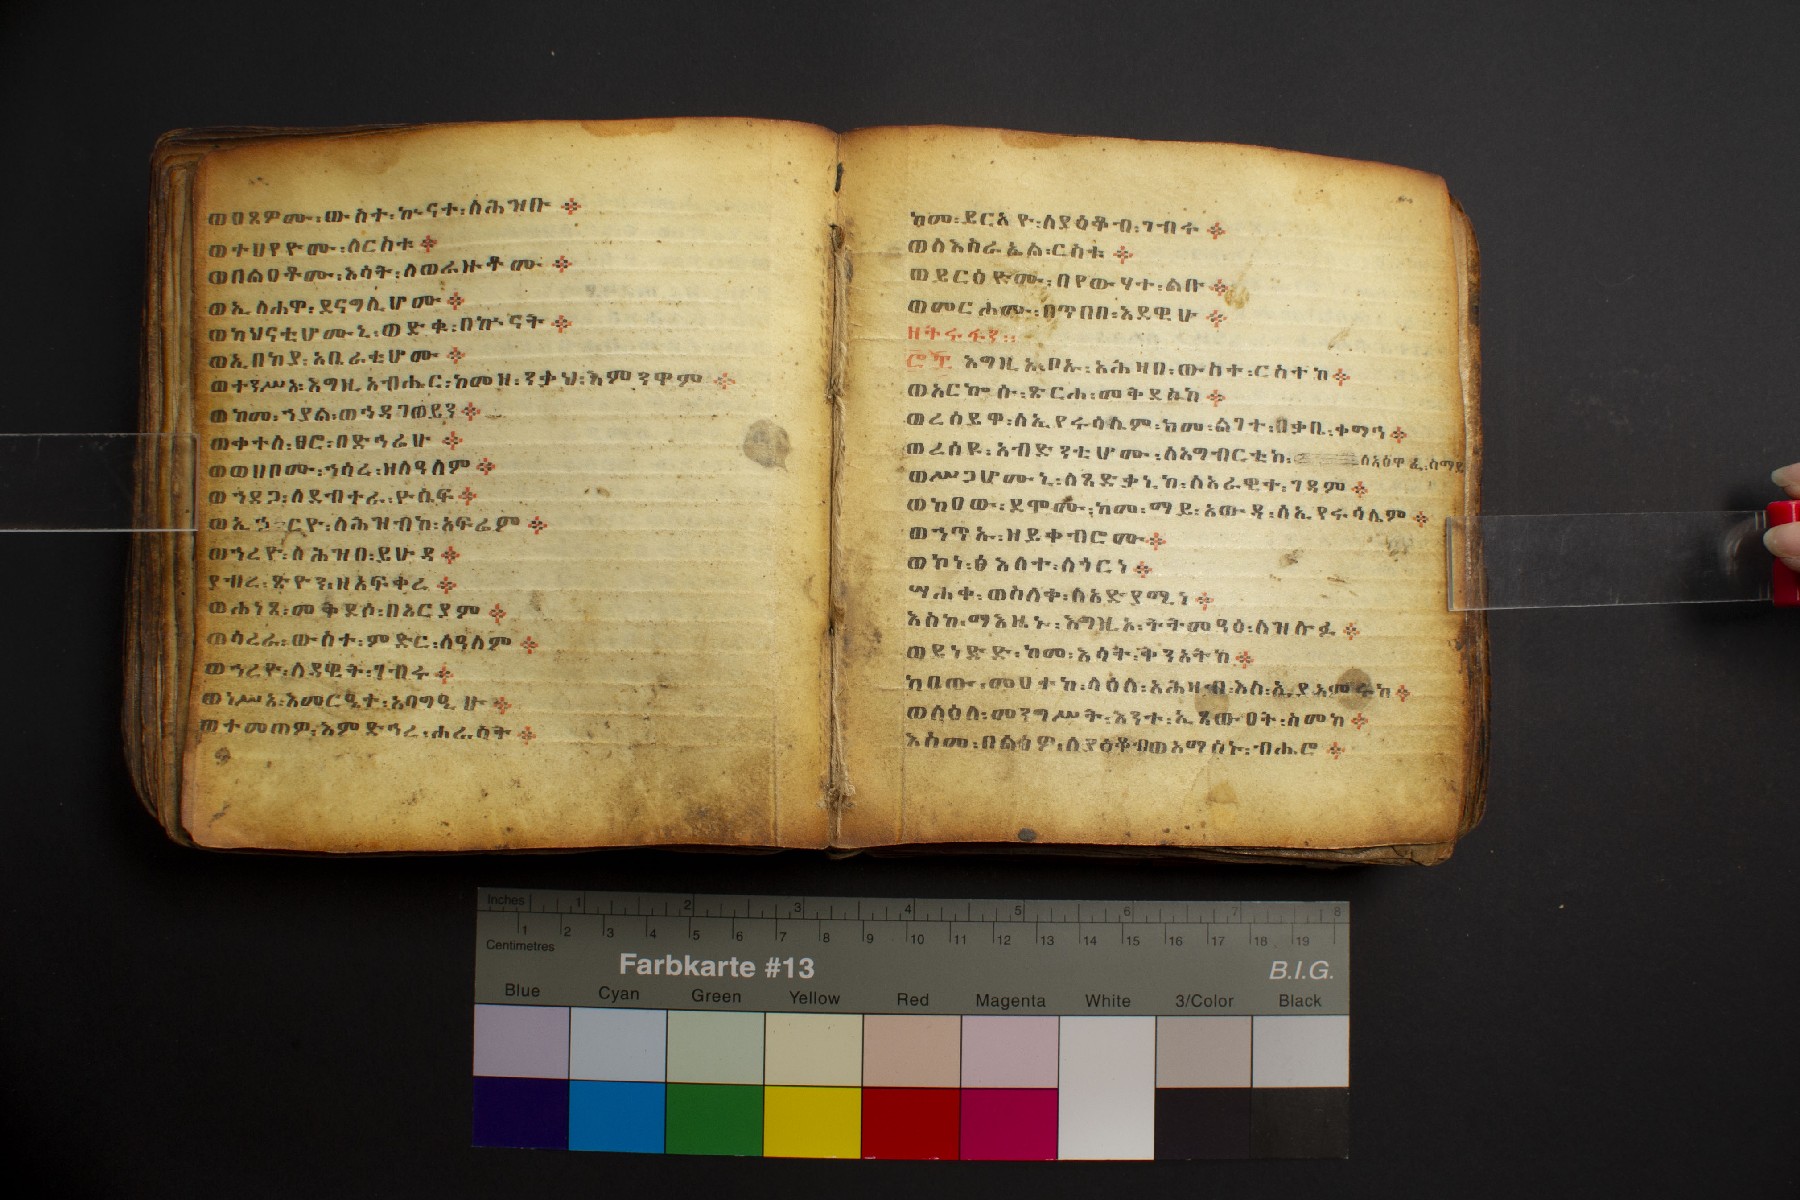 ወዐጸዎሙ፡ውስተ፡ኵናተ፡ለሕዝቡ፨
ወተሀየዮሙ፡ለርስቱ፨
ወበልዐቶሙ፡እሳት፡ለወራዙቶሙ፨
ወኢላሐዋ፡ደናግሊሆሙ፨
ወካህናቲሆሙኒ፡ወድቁ፡በኵናት፨
ወኢበከያ፡አቤራቲሆሙ፨
ወተንሥአ፡እግዚአብሔር፡ከመዘ፡ንቃህ፡እምንዋም፨
ወከመ፡ኀያል፡ወኀዳገወይን፨
ወቀተለ፡ፀሮ፡በድኅሬሁ፨
ወወሀቦሙ፡ኀሳረ፡ዘለዓለም፨
ወኀደጋ፡ለደብተራ፡ዮሴፍ፨
ወኢኃርዮ፡ለሕዝብከ፡አፍሬም፨
ወኀረዮ፡ለሕዝበ፡ይሁዳ፨
ደብረ፡ጽዮን፡ዘአፍቀረ፨
ወሐነጸ፡መቅደሶ፡በአርያም፨
ወሳረራ፡ውስተ፡ምድር፡ለዓለም፨
ወኀረዮ፡ለዳዊት፡ገብሩ፨
ወነሥአ፡እመርዔተ፡አባግዒሁ፨
ወተመጠዎ፡እምድኅረ፡ሐራሳት፨
ከመ፡ይርአዮ፡ለያዕቆብ፡ገብሩ፨
ወለእስራኤል፡ርስቱ፨
ወይርዕዮሙ፡በየውሃተ፡ልቡ፨
ወመርሐሙ፡በጥበበ፡እደዊሁ፨
ዘትሩፋን፡፡
እግዚኦ፡ቦኡ፡አሕዛብ፡ውስተ፡ርስተከ፨
ወአርኰሱ፡ጽርሐ፡መቅደስከ፨
ወረሰይዋ፡ለኢየሩሳሌም፡ከመ፡ልገተ፡በቃቤ፡ቀማሕ፨
ወረሰዩ፡አብድንቲሆሙ፡ለአግብርቲከ፡ለአዕዋፈ፡ሰማይ
ወሥጋሆሙኒ፡ለጻድቃኒከ፡ለአራዊተ፡ገዳም፨
ወከዐው፡ደሞሙ፡ከመ፡ማይ፡አውዳ፡ለኢየሩሳሌም፨
ወኀጥኡ፡ዘይቀብሮሙ፨
ወኮነ፡ፅእለተ፡ለጎርነ፨
ሣሐቀ፡ወስላቀ፡ለአድያሚነ፨
እስከ፡ማእዜኑ፡እግዚኦ፡ትትመዓዕ፡ለዝሉፉ፨
ወይነድድ፡ከመ፡እሳት፡ቅንአትከ፨
ከዐው፡መዐተከ፡ላዕለ፡አሕዛብ፡እለ፡ኢያአምሩከ፨
ወላዕለ፡መንግሥት፡እንተ፡ኢጸውዐት፡ስመከ፨
እስመ፡በልዕዎ፡ለያዕቆብ፡ወአማሰኑ፡ብሔሮ፨
Inches 1 2 3 4 5 6 7 8
1 2 3 4 5 6 7 8 9 10 11 12 13 14 15 16 17 18 19
Centimetres
Farbkarte #13
B.I.G.
Blue Cyan Green Yellow Red Magenta White 3/Color Black